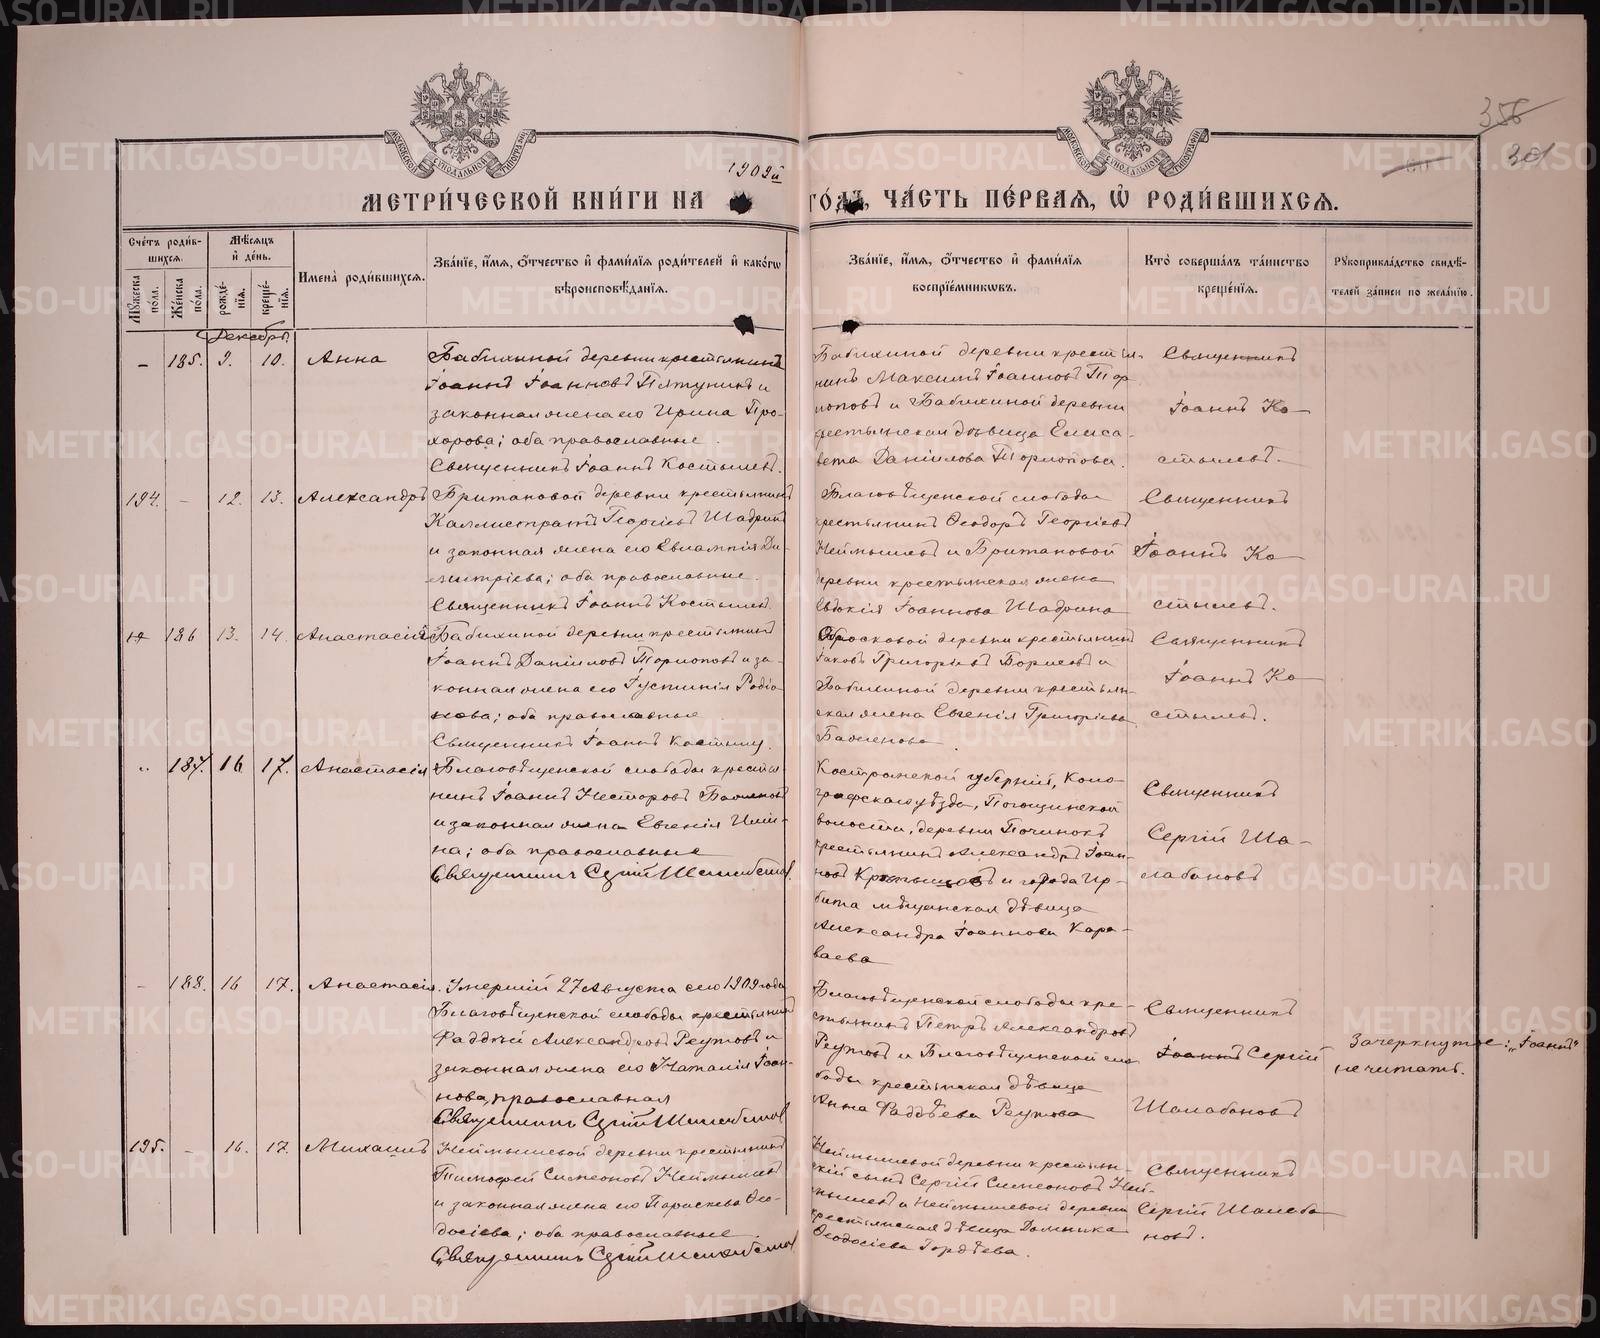 356
301
МОСКОВСКОЙ СѴНОДАЛЬНОЙ ТИПОГРАФІИ
МОСКОВСКОЙ СѴНОДАЛЬНОЙ ТИПОГРАФІИ
МЕТРИ́ЧЕСКОЙ КНИ́ГИ НА 1909й ГО́ДЪ, ЧА́СТЬ ПЕ́РВАЯ, Ѽ РОДИ́ВШИХСЯ.
Счетъ родившихся.
Мѣсяцъ и день.
Имена родившихся.
Званіе, имя, отчество и фамилія родителей и какогѡ вѣроисповѣданія.
Званіе, имя, отчество и фамилія воспріемниковъ.
Кто совершалъ таинство крещенія.
Рукоприкладство свидѣтелей записи по желанію.
Мужеска пола.
Женска пола.
рожденія.
крещенія.
Декабрь
– 185. 9. 10. Анна
Бабихиной деревни крестьянинъ
Іоаннъ Іоанновъ Пятунинъ и
законная жена его Ирина Про-
хорова; оба православные.
Священникъ Іоаннъ Костылевъ.
Бабихиной деревни крестья-
нинъ Максимъ Іоанновъ Тор-
поповъ и Бабихиной деревни
крестьянская дѣвица Елиса-
вета Даніилова Торпопова.
Священникъ
Іоаннъ Ко-
стылевъ.
194. – 12. 13. Александръ
Притановой деревни крестьянинъ
Каллистратъ Георгіевъ Шадринъ
и законная жена его Евлампія Ди-
митріева; оба православные.
Священникъ Іоаннъ Костылевъ.
Благовѣщенской слободы
крестьянинъ Ѳеодоръ Георгіевъ
Неймышевъ и Притановой
деревни крестьянская жена
Евдокія Іоаннова Шадрина
Священникъ
Іоаннъ Ко-
стылевъ.
186 13. 14. Анастасія
Бабихиной деревни крестьянинъ
Іоаннъ Даніиловъ Торпоповъ и за-
конная жена его Іустинія Родіо-
нова; оба православные
Священникъ Іоаннъ Костылевъ.
Обросковой деревни крестьянинъ
Іаковъ Григорьевъ и
Бабихиной деревни крестьян-
ская жена Евгенія Григорьева
Баженова.
Священникъ
Іоаннъ Ко-
стылевъ.
187. 16 17. Анастасія
Благовѣщенской слободы крестья-
нинъ Іоаннъ Несторовъ Баженовъ
и законная жена Евгенія Или-
на; оба православные
Священникъ Сергій Шалабановъ.
Костромской губерніи, Коло-
графскаго уѣзда,
волости, деревни Починокъ
крестьянинъ Александръ Іоан-
новъ и города Ир-
бита мѣщанская дѣвица
Александра Іоаннова Кара-
ваева
Священникъ
Сергій Ша-
лабановъ
– 188. 16 17. Анастасія.
Умершій 27 Августа сего 1909 года
Благовѣщенской слободы крестьянинъ
Фаддѣй Александровъ Реутовъ и
законная жена его Наталія Іоан-
нова, православная
Священникъ Сергій Шалабановъ
Благовѣщенской слободы кре-
стьянинъ Петръ Александровъ
Реутовъ и Благовѣщенской сло-
боды крестьянская дѣвица
Анна Фаддѣева Реутова
Священникъ
Іоаннъ Сергій
Шалабановъ
Зачеркнутое: „Іоаннъ“
не читать.
195. – 16. 17. Михаилъ
Неймышевой деревни крестьянинъ
Тимофей Симеоновъ Неймышевъ
и законная жена его Параскева Ѳео-
досіева; оба православные.
Священникъ Сергій Шалабановъ
Неймышевой деревни крестьян-
скій сынъ Сергій Симеоновъ Ней-
мышевъ и Неймышевой деревни
крестьянская дѣвица Домника
Ѳеодосіева Гордѣева.
Священникъ
Сергій Шалаба-
новъ.
METRIKI.GASO-URAL.RU